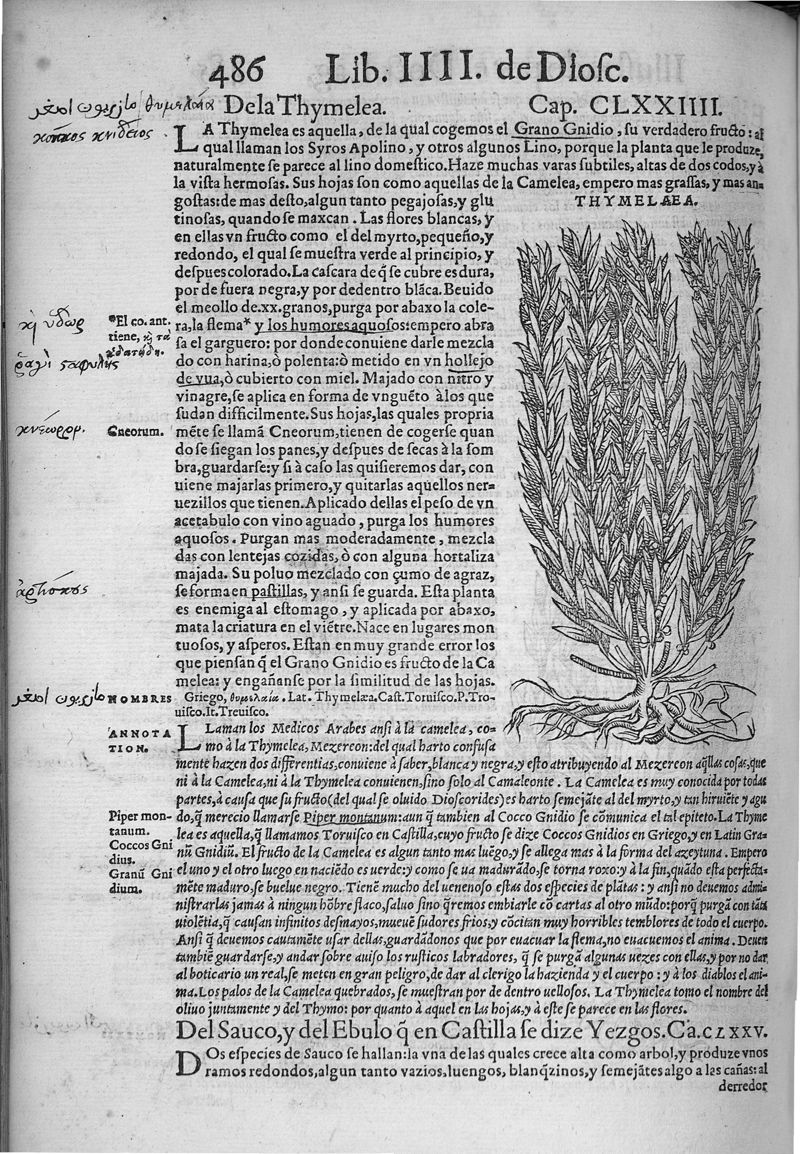 486 Lib. IIII. de Diosc.
θυμελαία De la Thymelea. Cap. CLXXIIII.
LA Thymelea es aquella, de la qual cogemos el Grano Gnidio, su verdadero fructo: al
qual llaman los Syros Apolino, y otros algunos Lino, porque la planta que le produze,
naturalmente se parece al lino domestico. Haze muchas varas subtiles, altas de dos codos, y à
la vista hermosas. Sus hojas son como aquellas de la Camelea, empero mas grassas, y mas an-
THYMELAEA.
gostas: de mas desto, algun tanto pegajosas, y glu
tinosas, quando se maxcan. Las flores blancas, y
en ellas vn fructo como el del myrto, pequeño, y
redondo, el qual se muestra verde al principio, y
despues colorado. La cascara de q̃ se cubre es dura,
por de fuera negra, y por dedentro blãca. Beuido
el meollo de .xx. granos, purga por abaxo la cole-
ra, la flema* y los humores aquosos: empero abra
*El co. ant.
tiene,
sa el garguero: por donde conuiene darle mezcla
do con harina, ò polenta: ò metido en vn hollejo
de vua, ò cubierto con miel. Majado con nitro y
vinagre, se aplica en forma de vnguẽto à los que
sudan difficilmente. Sus hojas, las quales propria
Cneorum.
mẽte se llamã Cneorum, tienen de cogerse quan
do se siegan los panes, y despues de secas à la som
bra, guardarse: y si à caso las quisieremos dar, con
uiene majarlas primero, y quitarlas aquellos ner-
uezillos que tienen. Aplicado dellas el peso de vn
acetabulo con vino aguado, purga los humores
aquosos. Purgan mas moderadamente, mezcla
das con lentejas cozidas, ò con alguna hortaliza
majada. Su poluo mezclado con çumo de agraz,
se forma en pastillas, y ansi se guarda. Esta planta
es enemiga al estomago, y aplicada por abaxo,
mata la criatura en el viẽtre. Nace en lugares mon
tuosos, y asperos. Estan en muy grande error los
que piensan q̃ el Grano Gnidio es fructo de la Ca
melea: y engañanse por la similitud de las hojas.
NOMBRES
Griego, θυμελαία. Lat. Thymelæa. Cast. Toruisco. P. Tro-
uisco. It. Treuisco.
ANNOTA
TION.
LLaman los Medicos Arabes ansi à la camelea, co-
mo à la Thymelea, Mezereon: del qual harto confusa
mente hazen dos differentias, conuiene à saber, blanca y negra, y esto atribuyendo al Mezereon aq̃llas cosas, que
ni à la Camelea, ni à la Thymelea conuienen, sino solo al Camaleonte. La Camelea es muy conocida por todas
partes, à causa que su fructo (del qual se oluido Dioscorides) es harto semejãte al del myrto, y tan hiruiẽte y agu
Piper mon-
tanum.
do, q̃ merecio llamarse Piper montanum: aun q̃ tambien al Cocco Gnidio se cõmunica el tal epiteto. La Thyme
Coccos Gni
dius.
lea es aquella, q̃ llamamos Toruisco en Castilla, cuyo fructo se dize Coccos Gnidios en Griego, y en Latin Gra-
Granũ Gni
dium.
nũ Gnidiũ. El fructo de la Camelea es algun tanto mas luẽgo, y se allega mas à la forma del azeytuna. Empero
el uno y el otro luego en naciẽdo es uerde: y como se ua madurãdo, se torna roxo: y à la fin, quãdo esta perfecta-
mẽte maduro, se buelue negro. Tienẽ mucho del uenenoso estas dos especies de plãtas: y ansi no deuemos admi-
nistrarlas jamas à ningun hõbre flaco, saluo sino q̃remos embiarle cõ cartas al otro mũdo: porq̃ purgã con tãta
uiolẽtia, q̃ causan infinitos desmayos, mueuẽ sudores frios, y cõcitan muy horribles temblores de todo el cuerpo.
Ansi q̃ deuemos cautamẽte usar dellas, guardãdonos que por euacuar la flema, no euacuemos el anima. Deuen
tambiẽ guardarse, y andar sobre auiso los rusticos labradores, q̃ se purgã algunas uezes con ellas, y por no dar
al boticario un real, se meten en gran peligro, de dar al clerigo la hazienda y el cuerpo: y à los diablos el ani-
ma. Los palos de la Camelea quebrados, se muestran por de dentro uellosos. La Thymelea tomo el nombre del
oliuo juntamente y del Thymo: por quanto à aquel en las hojas, y à este se parece en las flores.
Del Sauco, y del Ebulo q̃ en Castilla se dize Yezgos. Ca. CLXXV.
DOs especies de Sauco se hallan: la vna de las quales crece alta como arbol, y produze vnos
ramos redondos, algun tanto vazios, luengos, blanq̃zinos, y semejãtes algo a las cañas: al
derredor